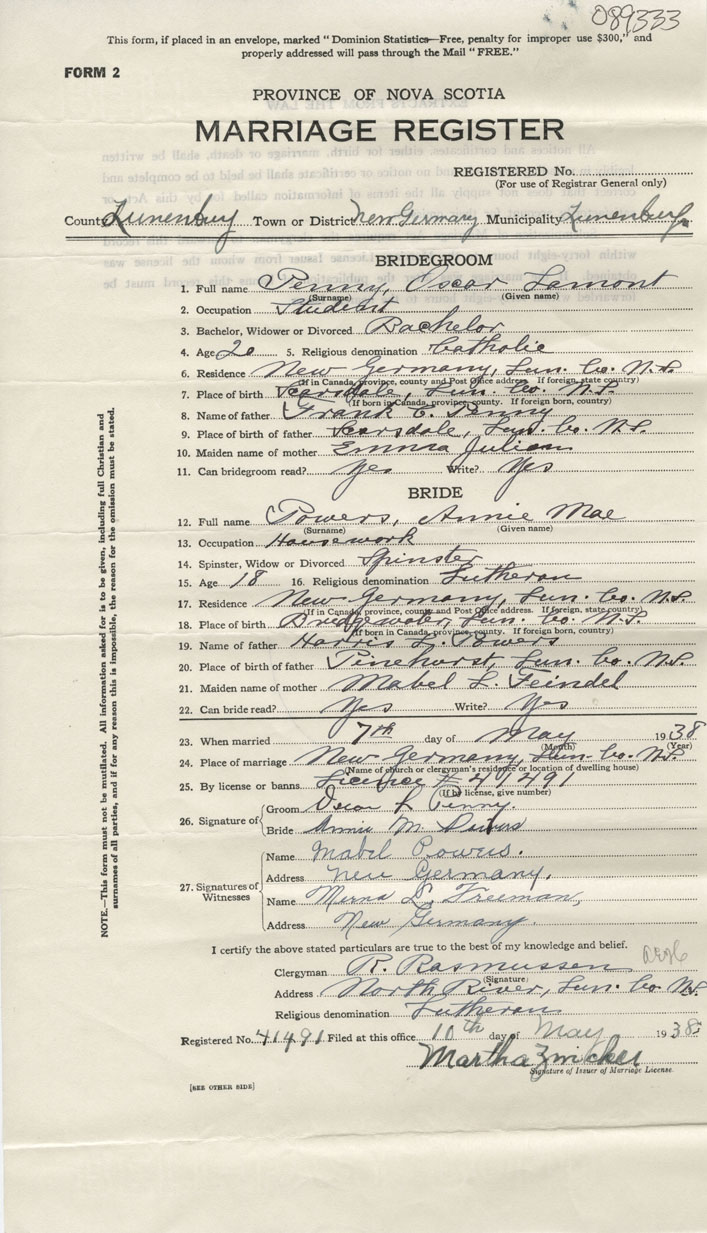 089333
This form, if placed in an envelope, marked "Dominion Statistics—Free, penalty for improper use $300," and
properly addressed will pass through the Mail "FREE."
FORM 2
PROVINCE OF NOVA SCOTIA
MARRIAGE REGISTER
REGISTERED No.
(For use of Registrar General only)
County Lunenburg Town or District New Germany Municipality Lunenburg
BRIDEGROOM
1. Full name Penny, Oscar Lamont
(Surname) (Given name)
2. Occupation Student
3. Bachelor, Widower or Divorced Bachelor
4. Age 20 5. Religious denomination Catholic
6. Residence New Germany, Lun. Co. N.S.
(If in Canada, province, county and Post Office address. If foreign, state country)
7. Place of birth Scarsdale, Lun. Co. N.S.
(If born in Canada, province, county. If foreign born, country)
8. Name of father Frank C. Penny
9. Place of birth of father Scarsdale, Lun. Co. N.S.
10. Maiden name of mother Emma Julian
11. Can bridegroom read? Yes Write? Yes
BRIDE
12. Full name Powers, Annie Mae
(Surname) (Given name)
13. Occupation Housework
14. Spinster, Widow or Divorced Spinster
15. Age 18 16. Religious denomination Lutheran
17. Residence New Germany, Lun. Co. N.S.
(If in Canada, province, county and Post Office address. If foreign, state country)
18. Place of birth Bridgewater, Lun. Co. N.S.
(If born in Canada, province, county. If foreign born, country)
19. Name of father Harris L. Powers
20. Place of birth of father Pinehurst, Lun. Co. N.S.
21. Maiden name of mother Mabel L. Feindel
22. Can bride read? Yes Write? Yes
23. When married 7th day of May 1938
(Month) (Year)
24. Place of marriage New Germany, Lun. Co. N.S.
(Name of church or clergyman's residence or location of dwelling house)
25. By license or banns Licence # 41491
(If by license, give number)
26. Signature of
Groom Oscar L. Penny.
Bride Annie M. Powers
27. Signatures of Witnesses
Name Mabel Powers.
Address New Germany.
Name Merna L. Freeman,
Address New Germany.
I certify the above stated particulars are true to the best of my knowledge and belief.
Clergyman R. Rasmussen
(Signature)
Address North River, Lun. Co. N.S.
Religious denomination Lutheran
Registered No. 41491 Filed at this office 10th day of May 1938
Martha Zwicker
Signature of Issuer of Marriage License.
[SEE OTHER SIDE]
NOTE.—This form must not be mutilated. All information asked for is to be given, including full Christian and
surnames of all parties, and if for any reason this is impossible, the reason for the omission must be stated.